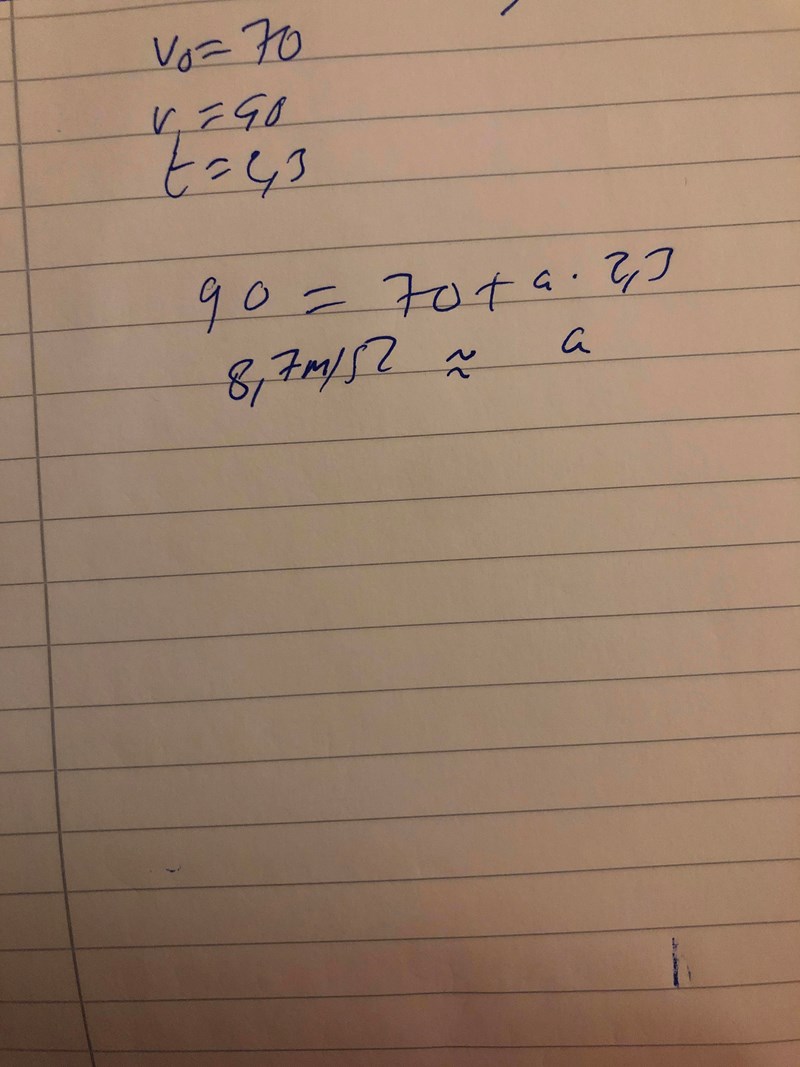 v₀ = 70
v₁ = 90
t = 2,3
90 = 70 + a · 2,3
8,7 m/s² ≈ a